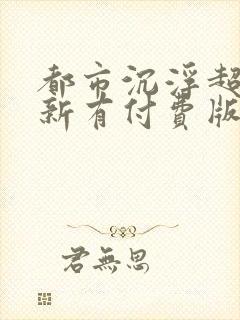 都市沉浮超
新有付费版
君無思